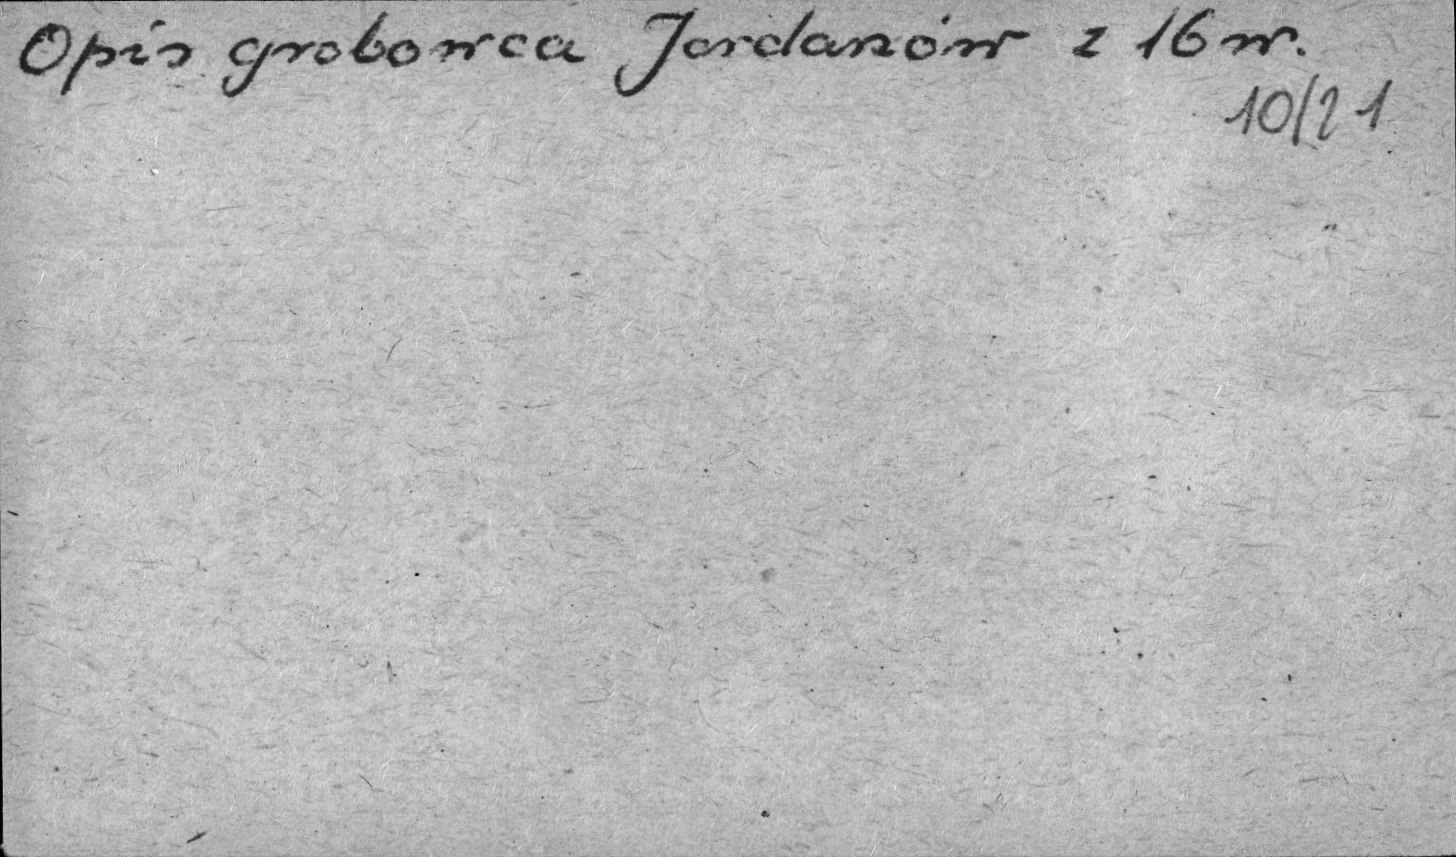 Opis grobowca Jordanów z 16 w.
10/21